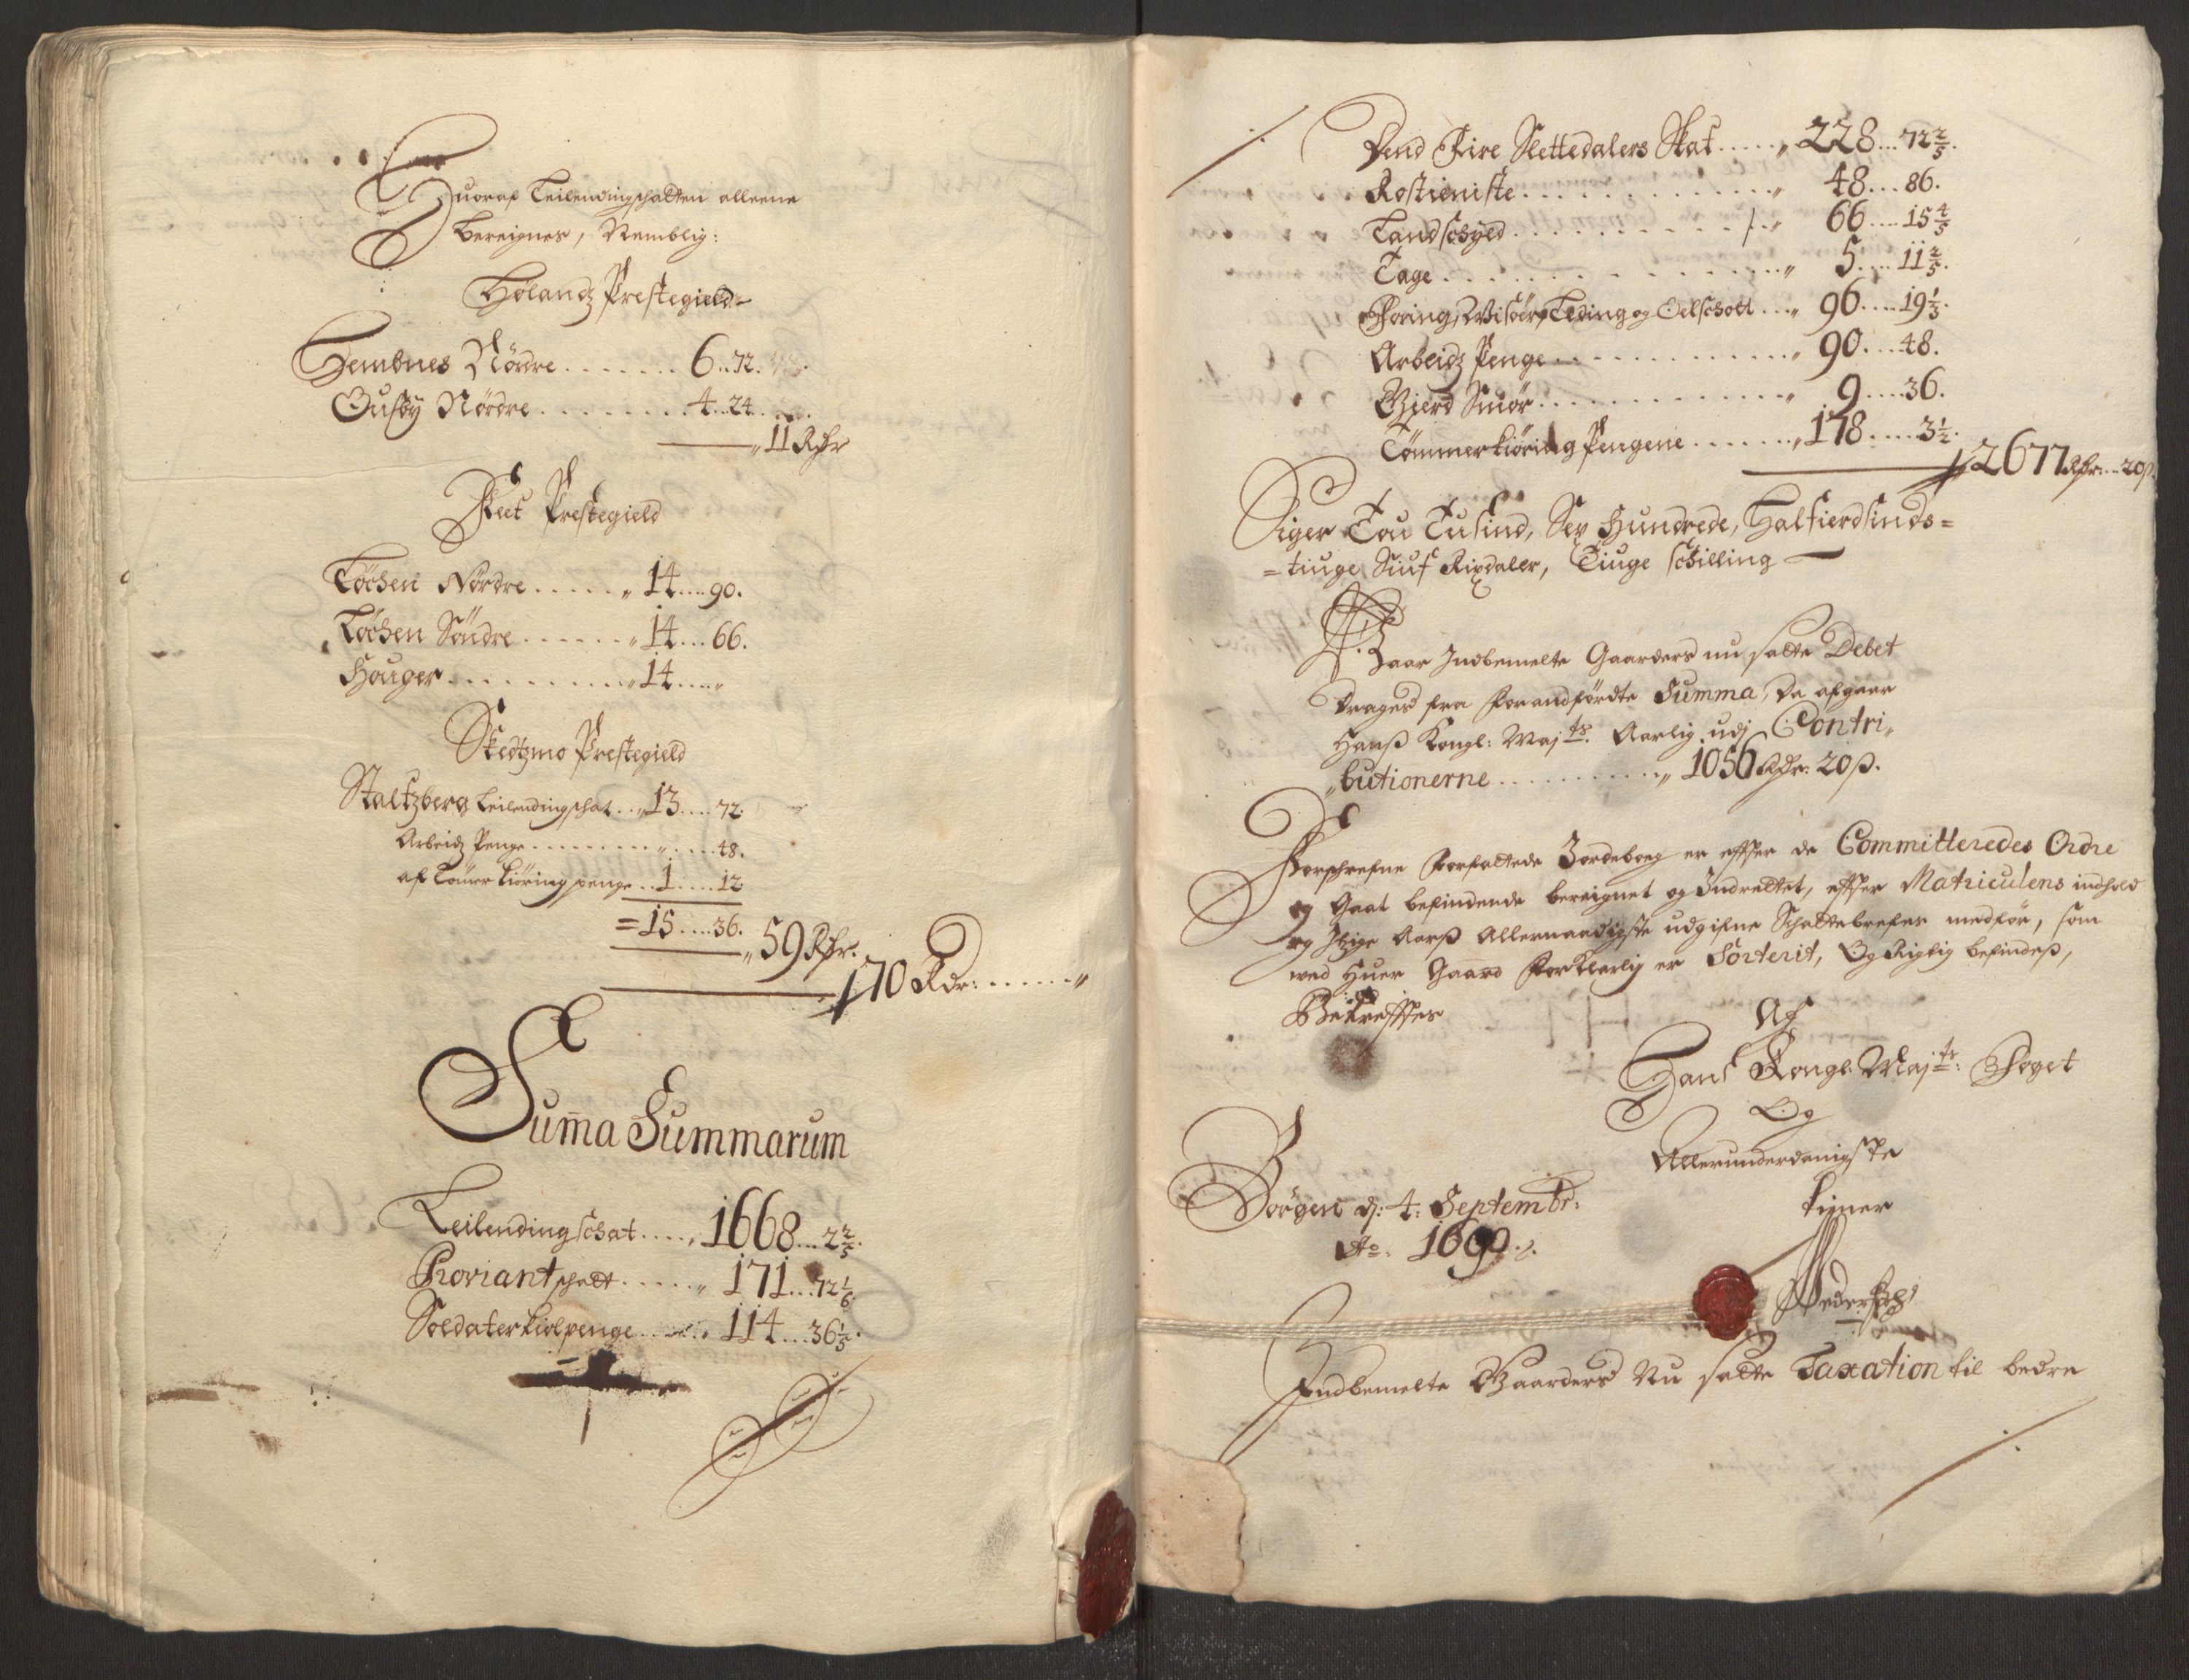 Huoraf Leilendingschatten alleene
Bereignes, Nemblig:
Hølandz Prestegield
Hembnes Nørdre . . . . . . . 6 .. 72.
Ousby Nørdre . . . . . . . 4 .. 24
„ 11 Rdr
Feet Prestegield
Løchen Nørdre . . . . . „ 14 .... 90.
Løchen Søndre . . . . . „ 14 .... 66.
Houger . . . . . . . . . „ 14 .... „
Skedtzmo Prestegield
Staltzberg Leilendingschat .. „ 13 .... 72.
Arbeidz Penge . . . . . . . . . „ .... 48.
af Tømer Kiøring penge .. 1 .... 12
= 15 .... 36.
„ 59 Rdr.
170 Rdr: . . . . . „
Sum̄a Summarum
Leilendingschat . . . . „ 1668 ... 2 2/5.
Proviantschatt . . . . . „ 171 ... 72 1/6.
Soldaterkiolpenge . . . . „ 114 ... 36 1/5.
Dend Fire Slettedalers Skat . . . . . „ 228 ... 72 2/5.
Rostieniste . . . . . . . . . . . . . „ 48 ... 86.
Landschyld . . . . . . . . . . . „ 66 .... 15 4/5
Tage . . . . . . . . . . . . . . . „ 5 .... 11 2/5.
Foring, Wisøer, Leding og Oelschott . . . „ 96 .... 19 1/3.
Arbeidz Penge . . . . . . . . . . . „ 90 .... 48.
Gierd Smør . . . . . . . . . . . . „ 9 .... 36.
Tømmerkiøring Pengene . . . . . . „ 178 .... 3 1/2.
2677 Rdr: .. 20 ß.
Siger Tou Tusind, Sex Hundrede, Halfierdsinds=
=tiuge Siuf Rixdaler, Tiuge schilling
Naar Indbemelte Gaarders nu satte Debet
drages fra forandførdte Summa, Da afgaar
Hanß Kongl: Majts. Aarlig udj Contri„
„butionerne . . . . . . . . . . . „ 1056 Rdr: 20 ß.
Forschrefne forfattede Jordebog er effter de Committeredes Ordre
og Gaat befindende bereignet og Indrettet, effter Matriculens indhold
og Itzige Aarß Allernaadigste udgifne Schattebrefer medfør, som
wed Huer Gaard forklarlig er Sorterit, Og Rigtig befindeß,
Bekreffter
Af
Hans Kongl: Majts: Foget
Og
Allerunderdanigste
tiener
Børgen d: 4: Septembr:
Ao: 1690.
Indbemelte Gaarders Nu satte Taxation til bedre